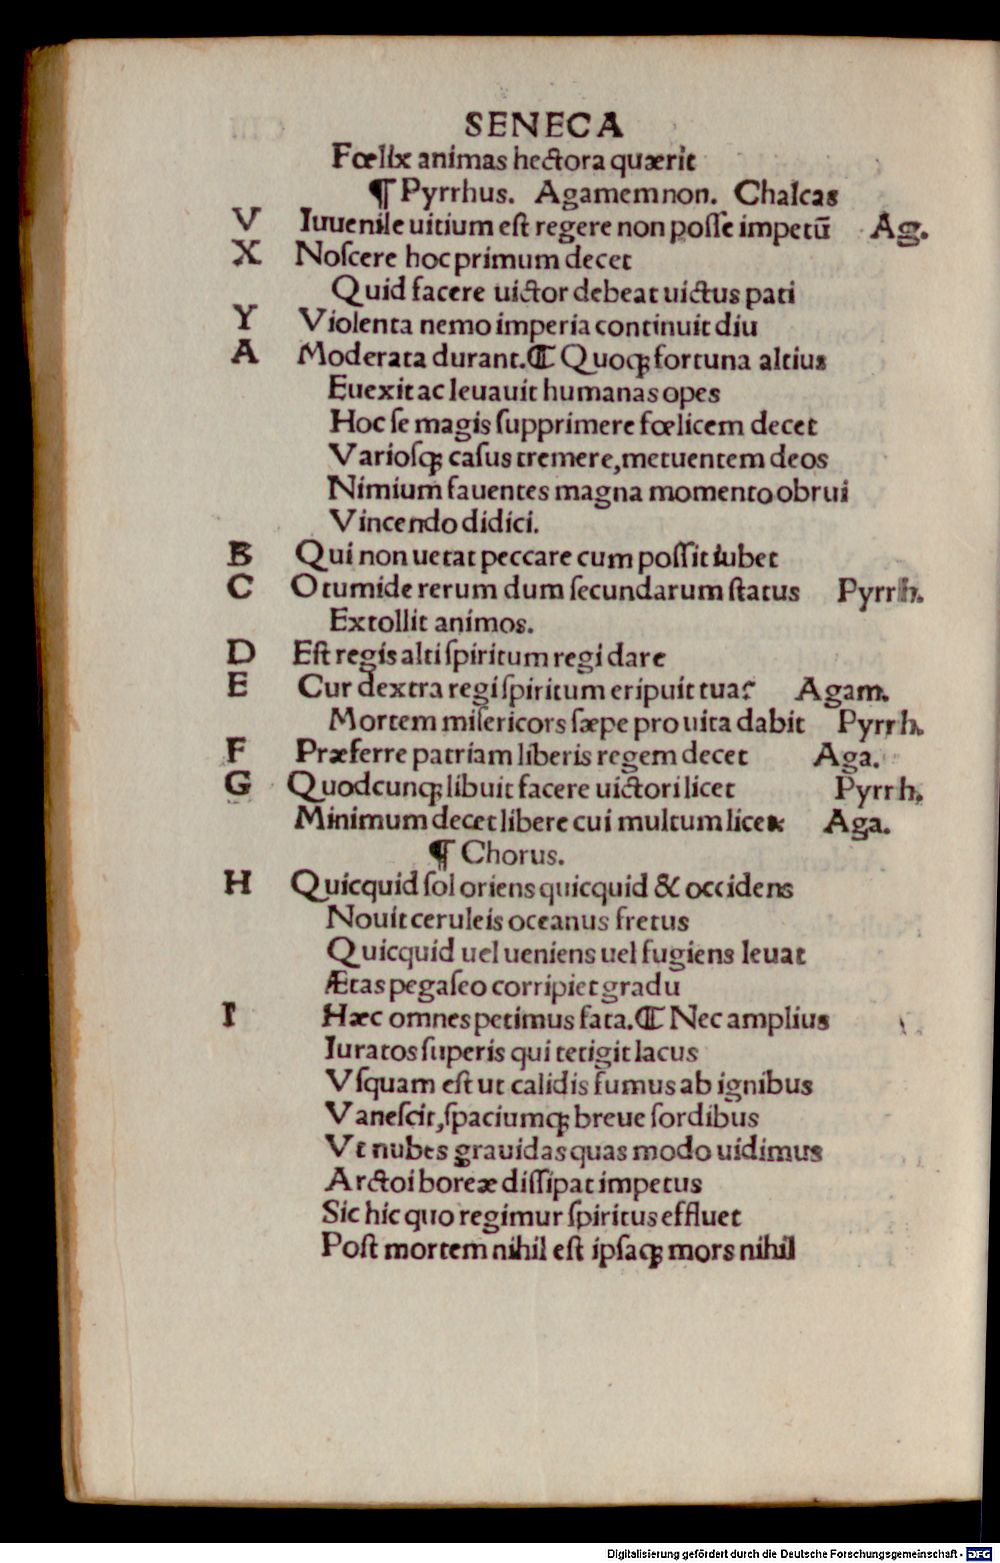 SENECA
Fœlix animas hectora quærit
¶ Pyrrhus. Agamemnon. Chalcas
V Iuuenile uitium eſt regere non poſſe impetū Ag.
X Noſcere hoc primum decet
Quid facere uictor debeat uictus pati
Y Violenta nemo imperia continuit diu
A Moderata durant.⸿ Quoqꝫ fortuna altius
Euexit ac leuauit humanas opes
Hoc ſe magis ſupprimere fœlicem decet
Varioſqꝫ caſus tremere,metuentem deos
Nimium fauentes magna momento obrui
Vincendo didici.
B Qui non uetat peccare cum poſſit iubet
C O tumide rerum dum ſecundarum ſtatus Pyrrh.
Extollit animos.
D Eſt regis alti ſpiritum regi dare
E Cur dextra regi ſpiritum eripuit tua? Agam.
Mortem miſericors ſæpe pro uita dabit Pyrrh.
F Præferre patriam liberis regem decet Aga.
G Quodcunqꝫ libuit facere uictori licet Pyrrh.
Minimum decet libere cui multum licet Aga.
¶ Chorus.
H Quicquid ſol oriens quicquid & occidens
Nouit ceruleis oceanus fretus
Quicquid uel ueniens uel fugiens leuat
Ætas pegaſeo corripiet gradu
I Hæc omnes petimus fata.⸿ Nec amplius
Iuratos ſuperis qui tetigit lacus
Vſquam eſt ut calidis fumus ab ignibus
Vaneſcit,ſpaciumqꝫ breue ſordibus
Vt nubes grauidas quas modo uidimus
Arctoi boreæ diſſipat impetus
Sic hic quo regimur ſpiritus effluet
Poſt mortem nihil eſt ipſaqꝫ mors nihil
Digitalisierung gefördert durch die Deutsche Forschungsgemeinschaft - DFG